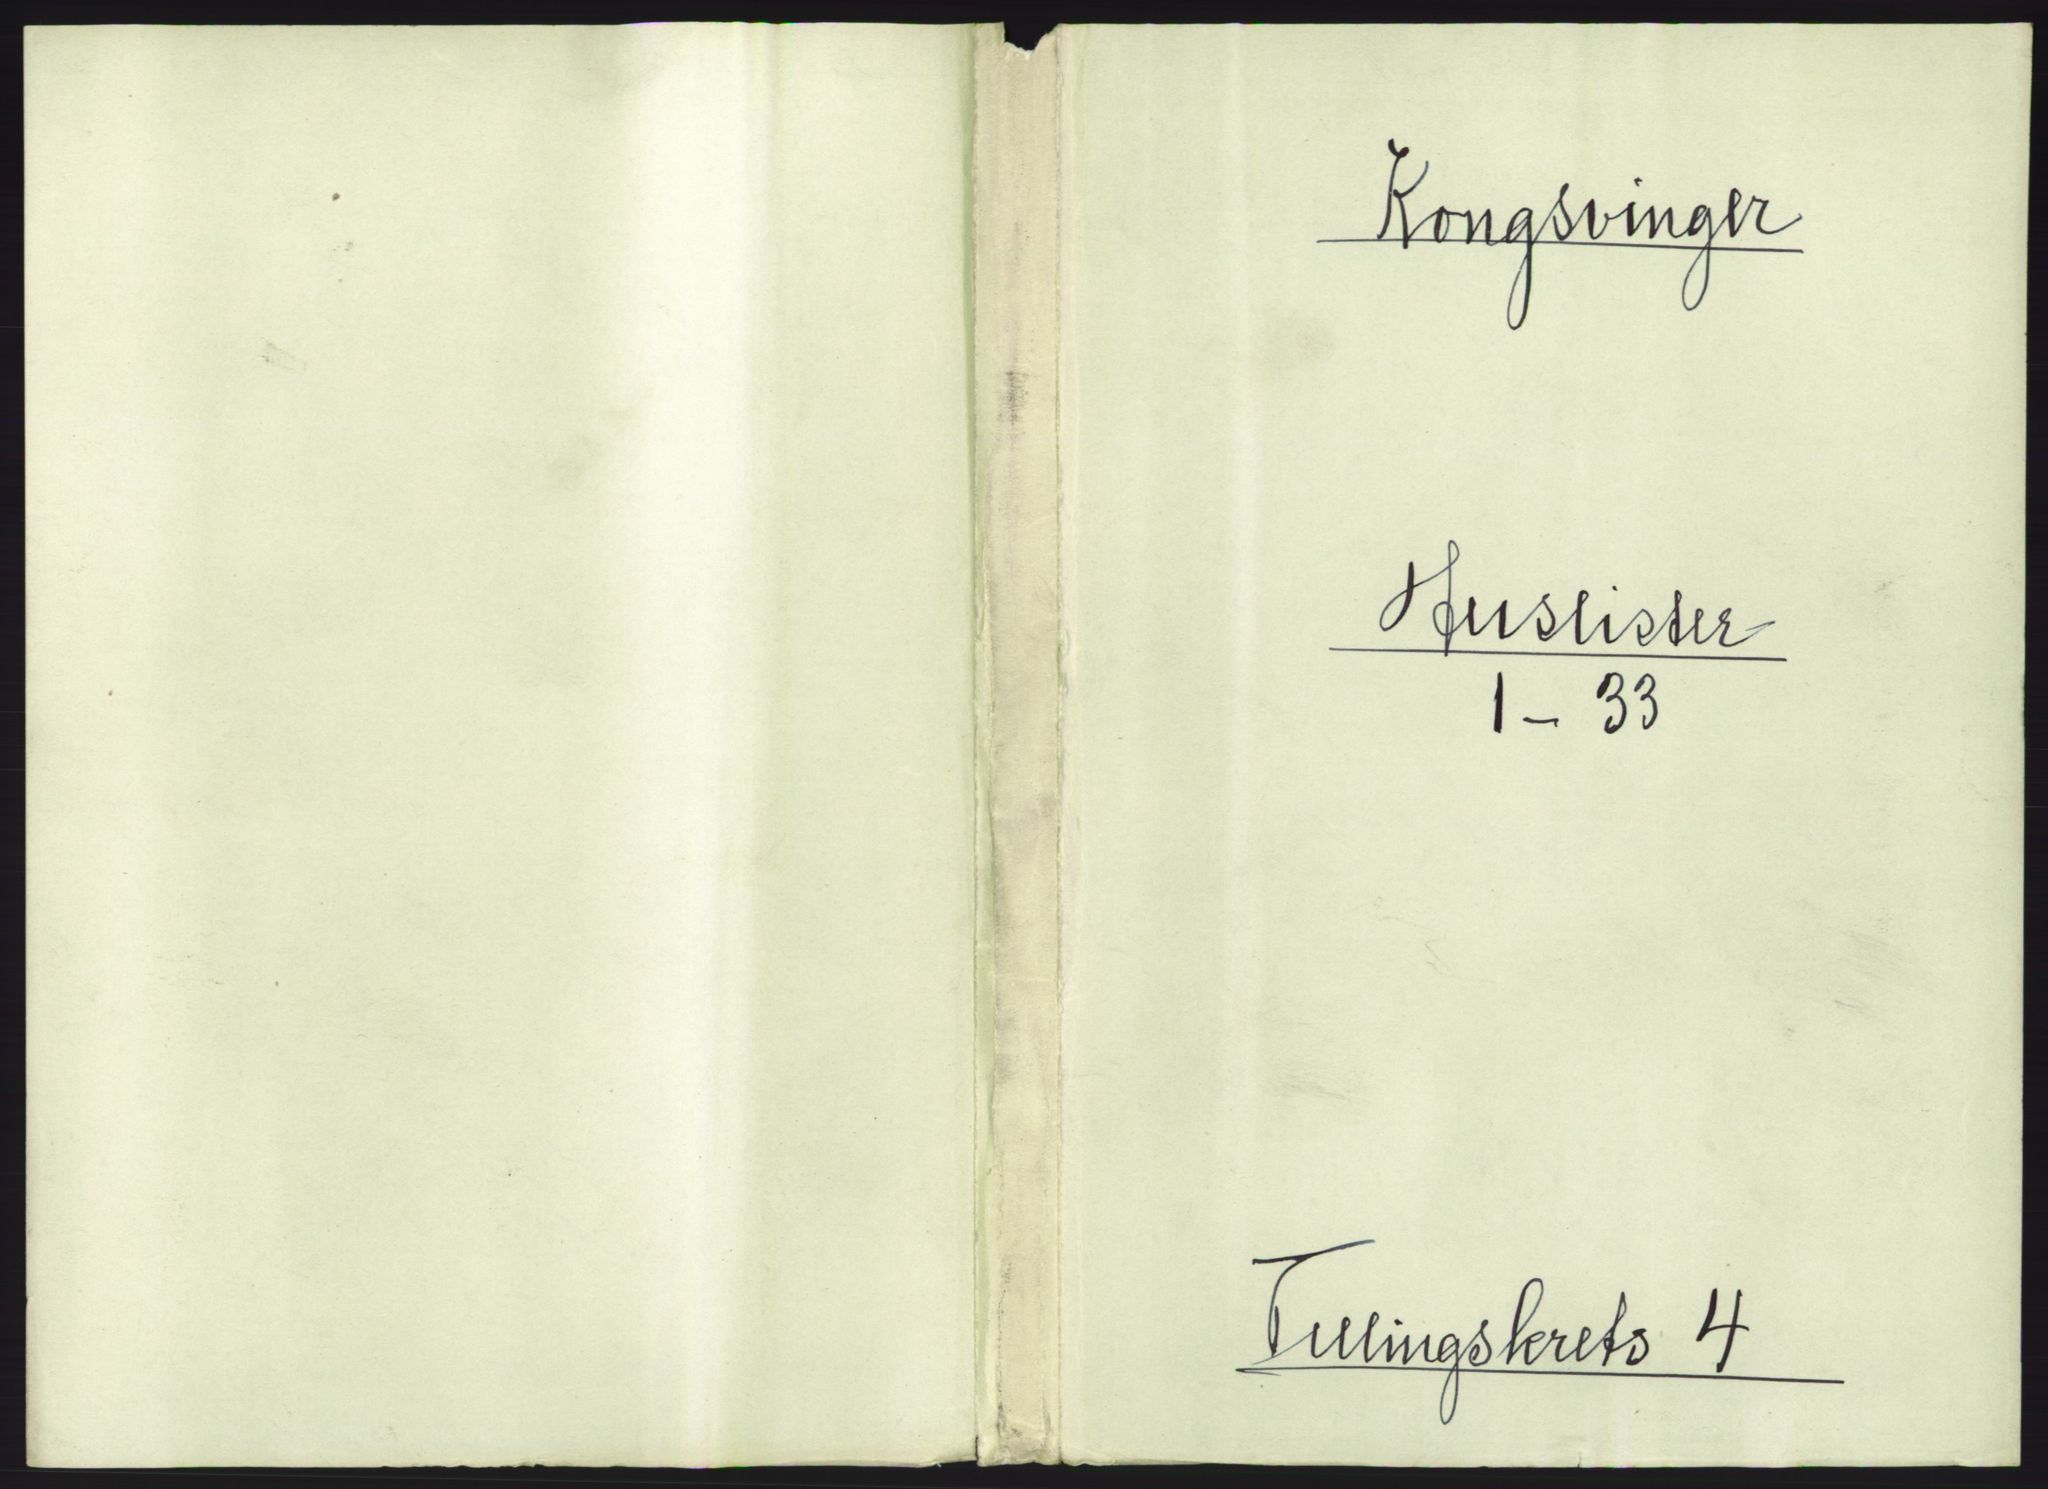 Kongsvinger
Huslister
1 – 33
Tellingskrets 4